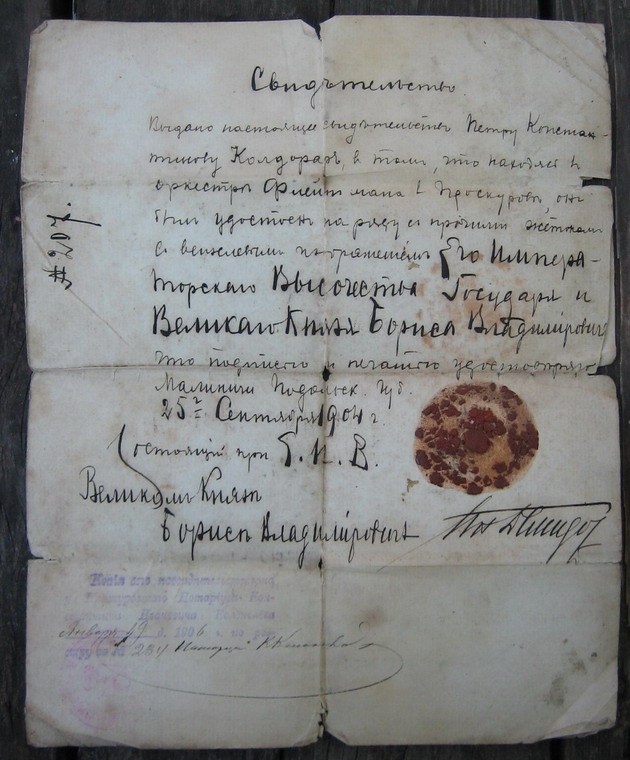 Свидѣтельство
Выдано настоящее свидѣтельство Петру Констан-
тинову Колдораръ, в томъ, что находясь в
оркестрѣ Флейтмана в Проскуровѣ, онъ
былъ удостоенъ на ряду с прочими жетономъ
с вензелевымъ изображеніемъ Его Импера-
торскаго Высочества Государя и
Великаго Князя Бориса Владиміровича
что подписью и печатью удостовѣряю
Малиничи Подольск губ.
25го Сентября 1904 г
Состоящій при Е. И. В.
Великомъ Князѣ
Борисѣ Владиміровичѣ
# 207.
Копія
Январь 19 д. 1906 г.
№ 254 Нотаріусъ